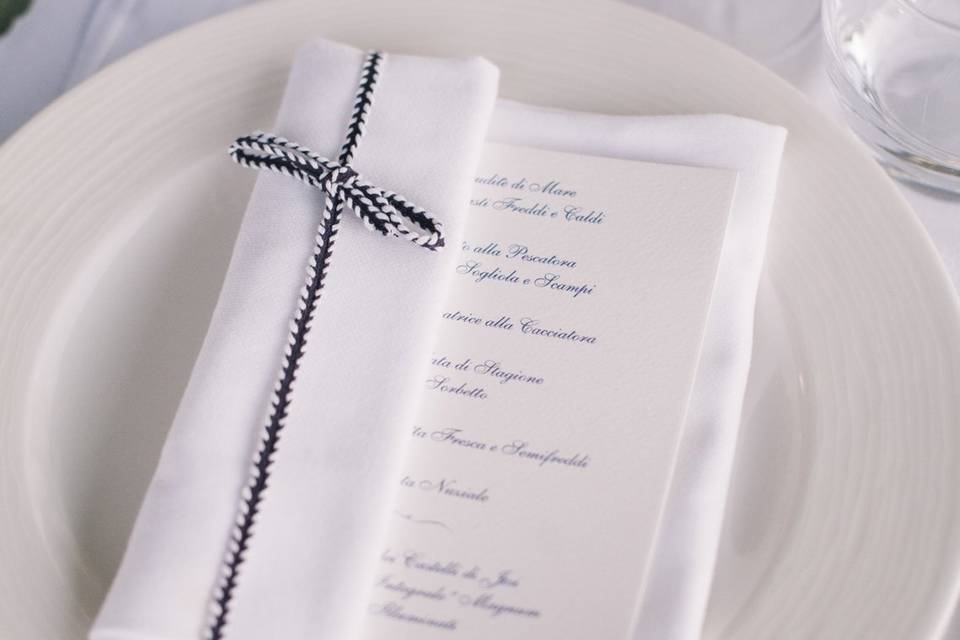 udite di Mare
sti Freddi e Caldi
o alla Pescatora
Sogliola e Scampi
atrice alla Cacciatora
ata di Stagione
Sorbetto
ta Fresca e Semifreddi
ta Nuziale
Castelli di
Integrale" Magnum